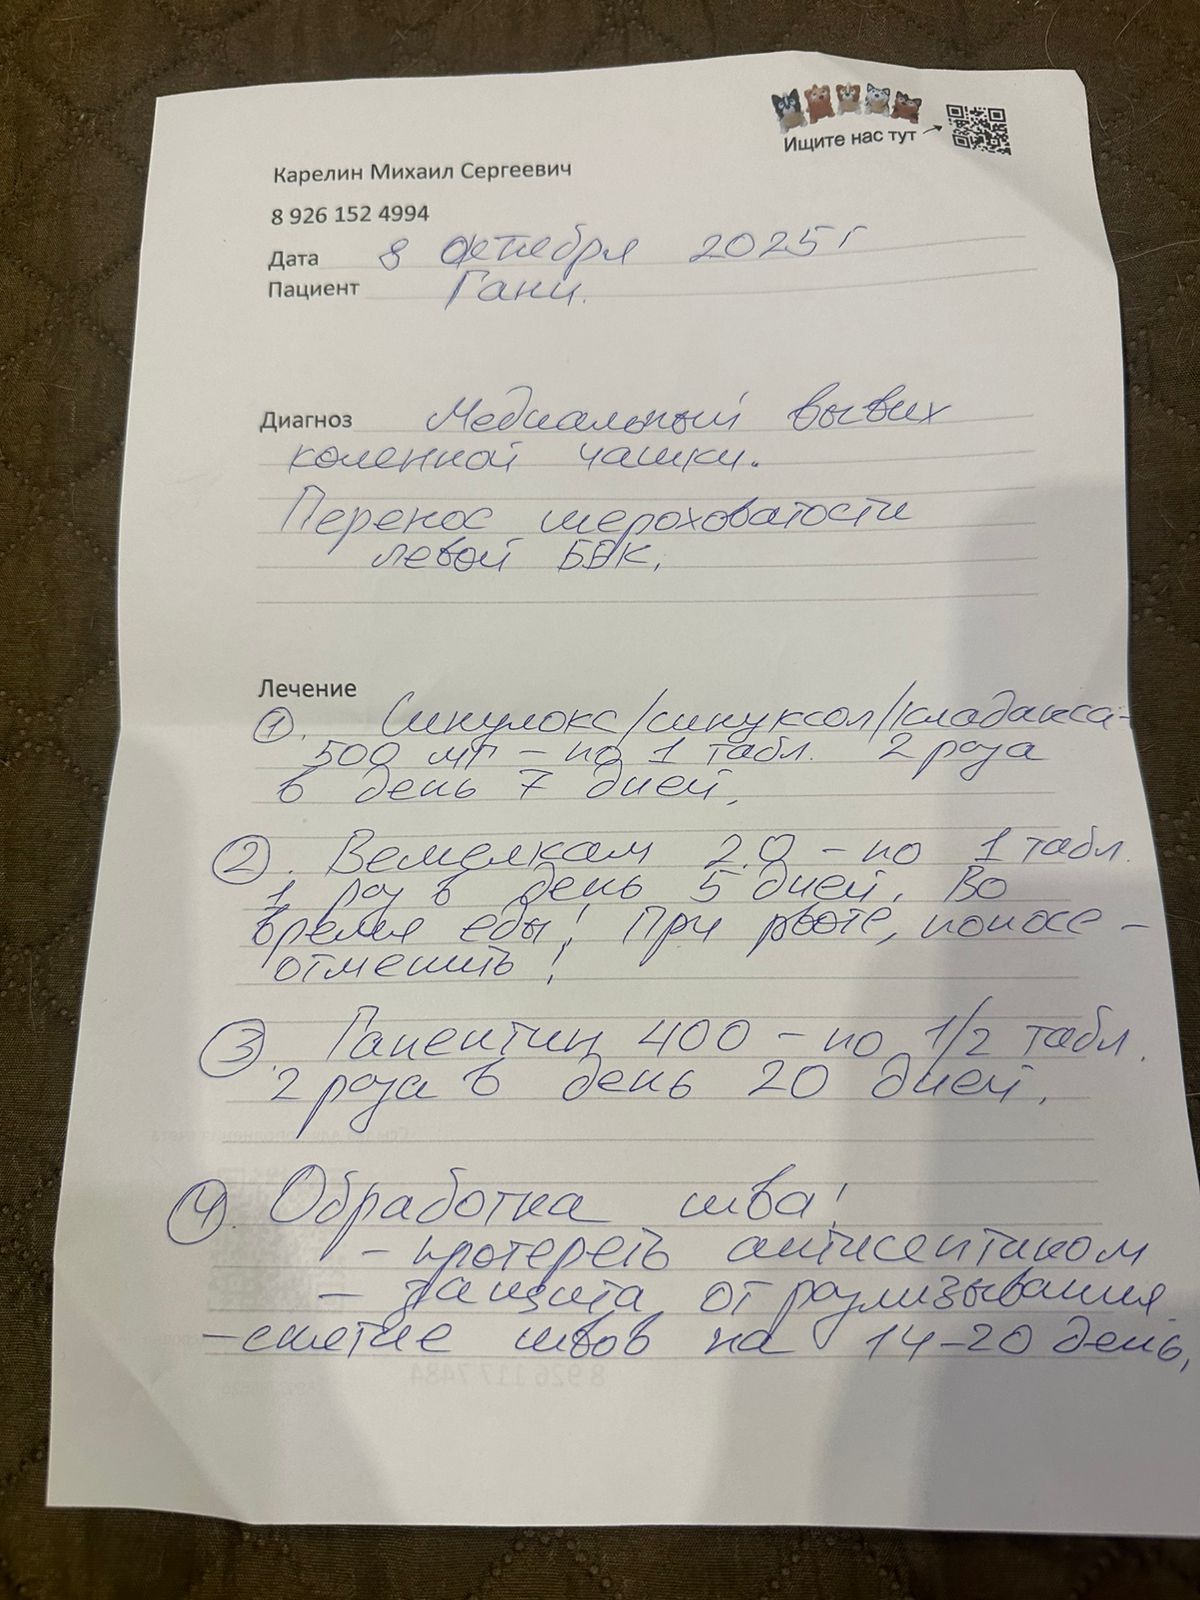 Ищите нас тут
Карелин Михаил Сергеевич
8 926 152 4994
Дата 8 Октября 2025 г
Пациент Гани.
Диагноз Медиальный вывих
коленной чашки.
Перенос шероховатости
левой ББК.
Лечение
1. Синулокс/синуксол/кладакса-
500 мг - по 1 табл. 2 раза
в день 7 дней.
2. Вемелкам 2.0 - по 1 табл.
1 раз в день 5 дней. Во
время еды! При рвоте, поносе -
отменить!
3. Гапентин 400 - по 1/2 табл.
2 раза в день 20 дней.
4. Обработка шва!
- протереть антисептиком
- защита от разлизывания
- снятие швов на 14-20 день.
8 926 117 7484